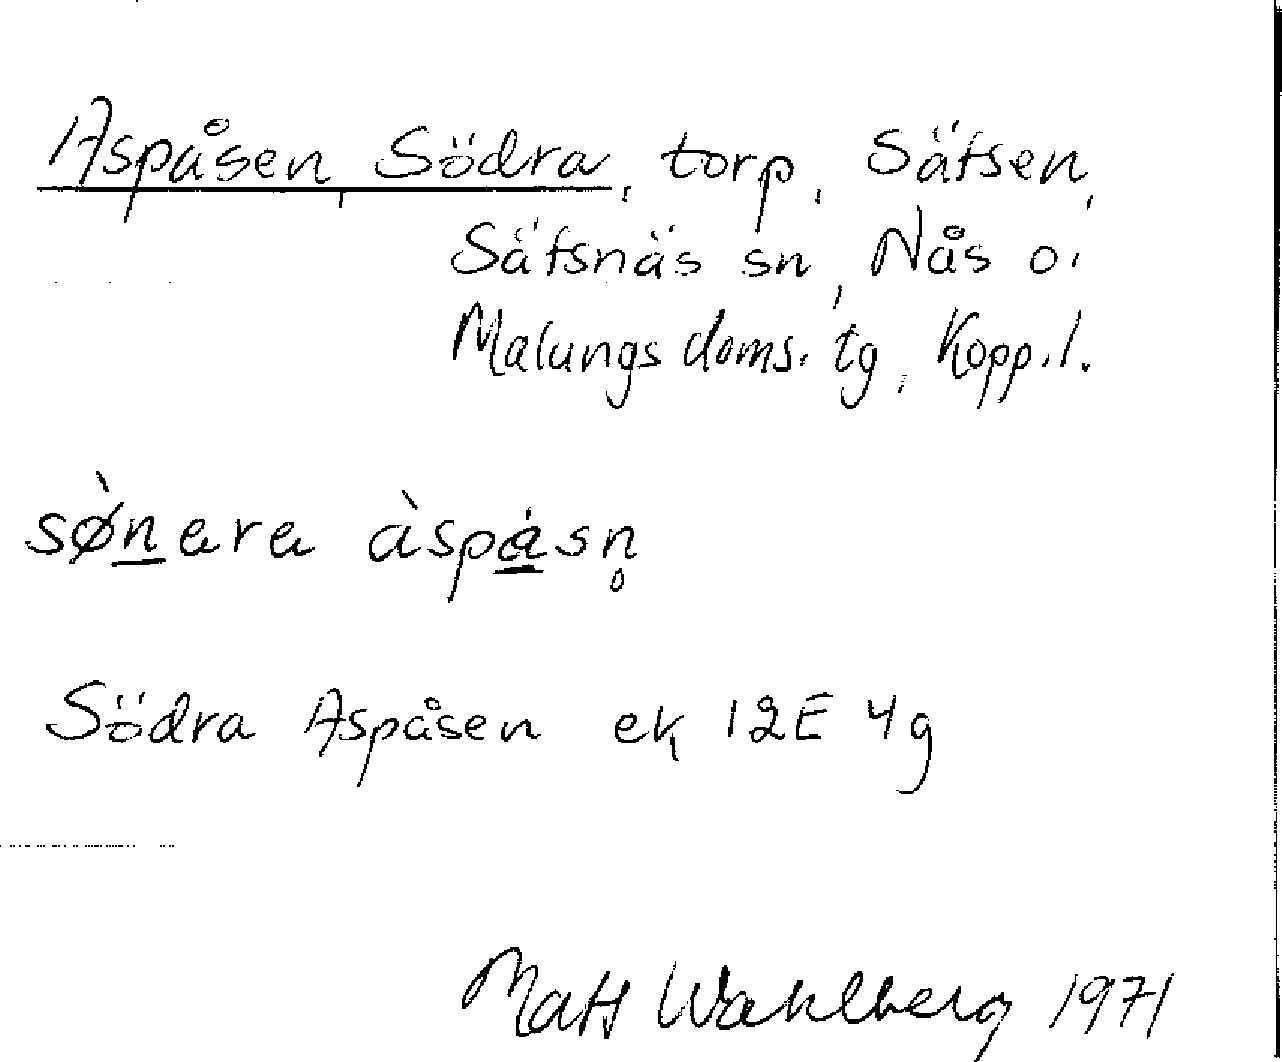 Aspåsen, Södra, torp, Säfsen,
Säfsnäs sn, Nås o.
Malungs doms. tg, Kopp. l.
sø̀nara àspásn̥
Södra Aspåsen ek 12E 4g
Mats Wahlberg 1971